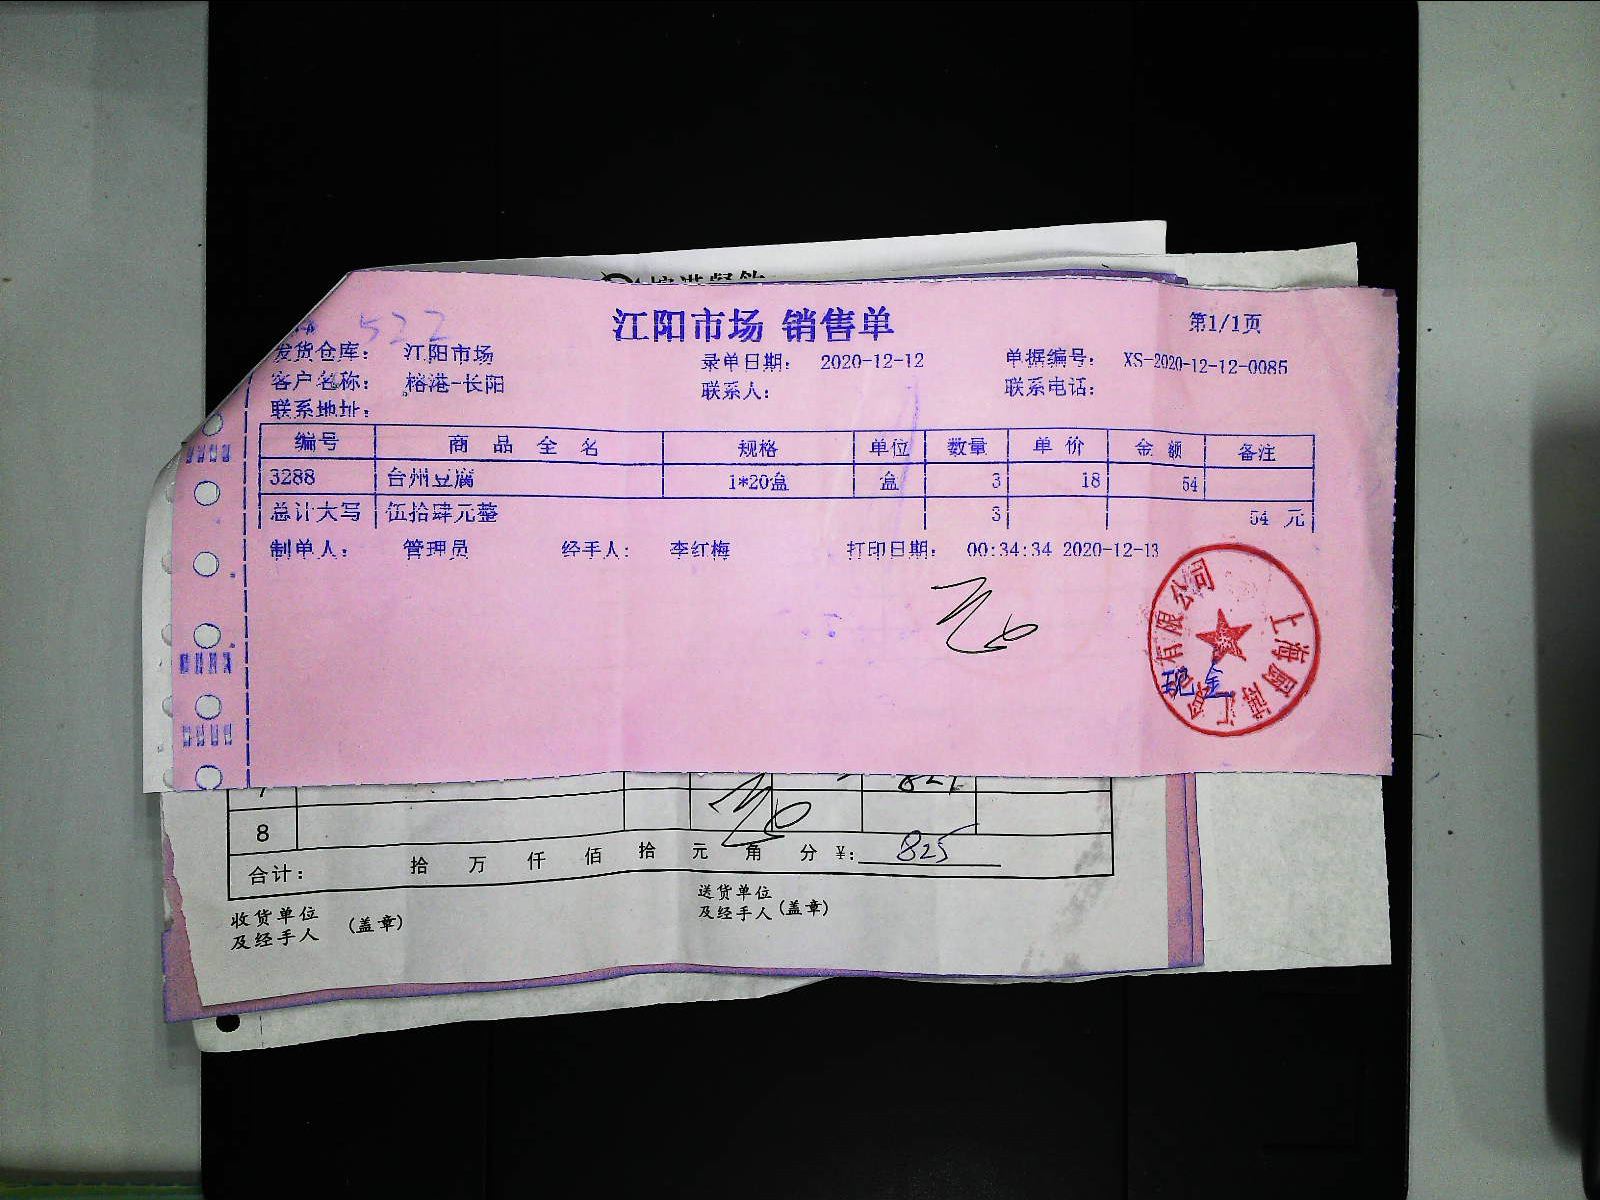 江阳市场 销售单
第1/1页
522
发货仓库： 江阳市场 录单日期： 2020-12-12 单据编号： XS-2020-12-12-0085
客户名称： 榕港-长阳 联系人： 联系电话：
联系地址：
编号 商品全名 规格 单位 数量 单价 金额 备注
3288 台州豆腐 1*20盒 盒 3 18 54
总计大写 伍拾肆元整 3 54 元
制单人： 管理员 经手人： 李红梅 打印日期： 00:34:34 2020-12-13
上海 有限公司
现金
7
8
合计： 拾 万 仟 佰 拾 元 角 分 ¥: 825
收货单位
及经手人 (盖章)
送货单位
及经手人 (盖章)